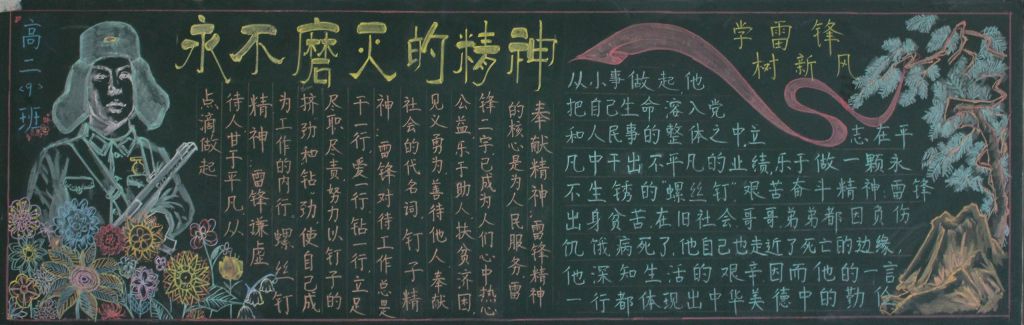 高二(9)班
永不磨灭的精神
奉献精神:雷锋精神
的核心是为人民服务,雷
锋二字已成为人们心中热心
公益乐于助人扶贫济困
见义勇为,善待他人奉献
社会的代名词。钉子精
神:雷锋对待工作,总是
干一行,爱一行,钻一行,立足
尽职尽责,努力以钉子的
挤劲和钻劲,使自己成
为工作的内行。螺丝钉
精神:雷锋谦虚
待人甘于平凡,从
点滴做起
学雷锋
树新风
从小事做起,他
把自己生命溶入党
和人民事的整体之中,立志在平
凡中干出不平凡的业绩,乐于做一颗永
不生锈的“螺丝钉”艰苦奋斗精神:雷锋
出身贫苦,在旧社会哥哥弟弟都因负伤
饥饿病死了,他自己也走近了死亡的边缘,
他深知生活的艰辛因而他的一言
一行都体现出中华美德中的勤俭